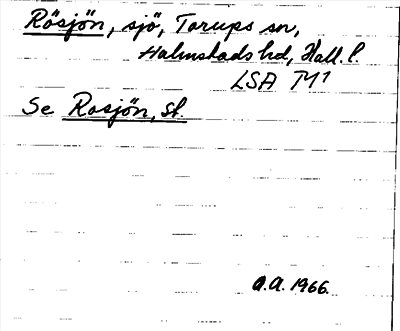 Rösjön, sjö, Torups sn,
Halmstads hd, Hall. l.
LSA TM1
Se Rosjön, St.
A.A. 1966